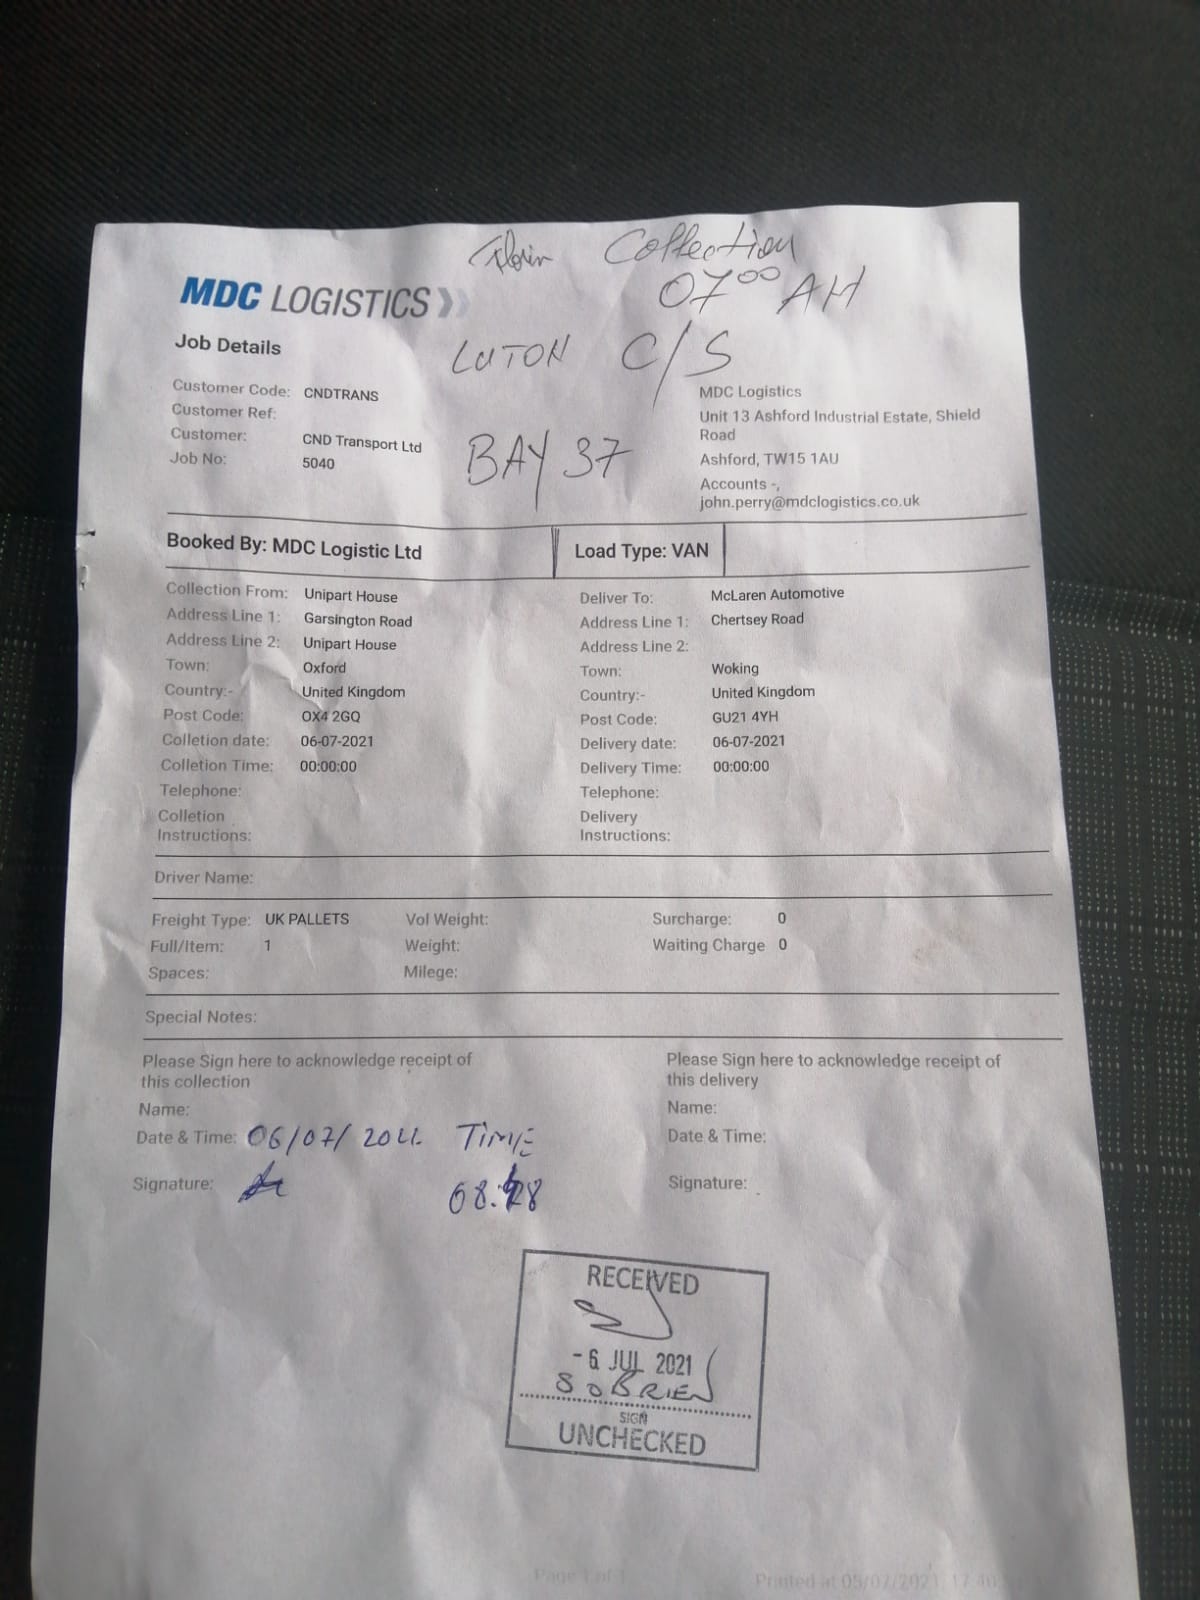 Florin Collection
07⁰⁰ AM
MDC LOGISTICS
LUTON C/S
Job Details
Customer Code: CNDTRANS
Customer Ref:
Customer: CND Transport Ltd
Job No: 5040
BAY 37
MDC Logistics
Unit 13 Ashford Industrial Estate, Shield
Road
Ashford, TW15 1AU
Accounts -,
john.perry@mdclogistics.co.uk
Booked By: MDC Logistic Ltd
Load Type: VAN
Collection From: Unipart House
Address Line 1: Garsington Road
Address Line 2: Unipart House
Town: Oxford
Country:- United Kingdom
Post Code: OX4 2GQ
Colletion date: 06-07-2021
Colletion Time: 00:00:00
Telephone:
Colletion
Instructions:
Deliver To: McLaren Automotive
Address Line 1: Chertsey Road
Address Line 2:
Town: Woking
Country:- United Kingdom
Post Code: GU21 4YH
Delivery date: 06-07-2021
Delivery Time: 00:00:00
Telephone:
Delivery
Instructions:
Driver Name:
Freight Type: UK PALLETS Vol Weight: Surcharge: 0
Full/Item: 1 Weight: Waiting Charge 0
Spaces: Milege:
Special Notes:
Please Sign here to acknowledge receipt of
this collection
Name:
Date & Time: 06/07/2021. TIME
Signature: 08:28
Please Sign here to acknowledge receipt of
this delivery
Name:
Date & Time:
Signature:
RECEIVED
-6 JUL 2021
S OBRIEN
SIGN
UNCHECKED
Page 1 of 1
Printed at 05/07/2021, 17:40